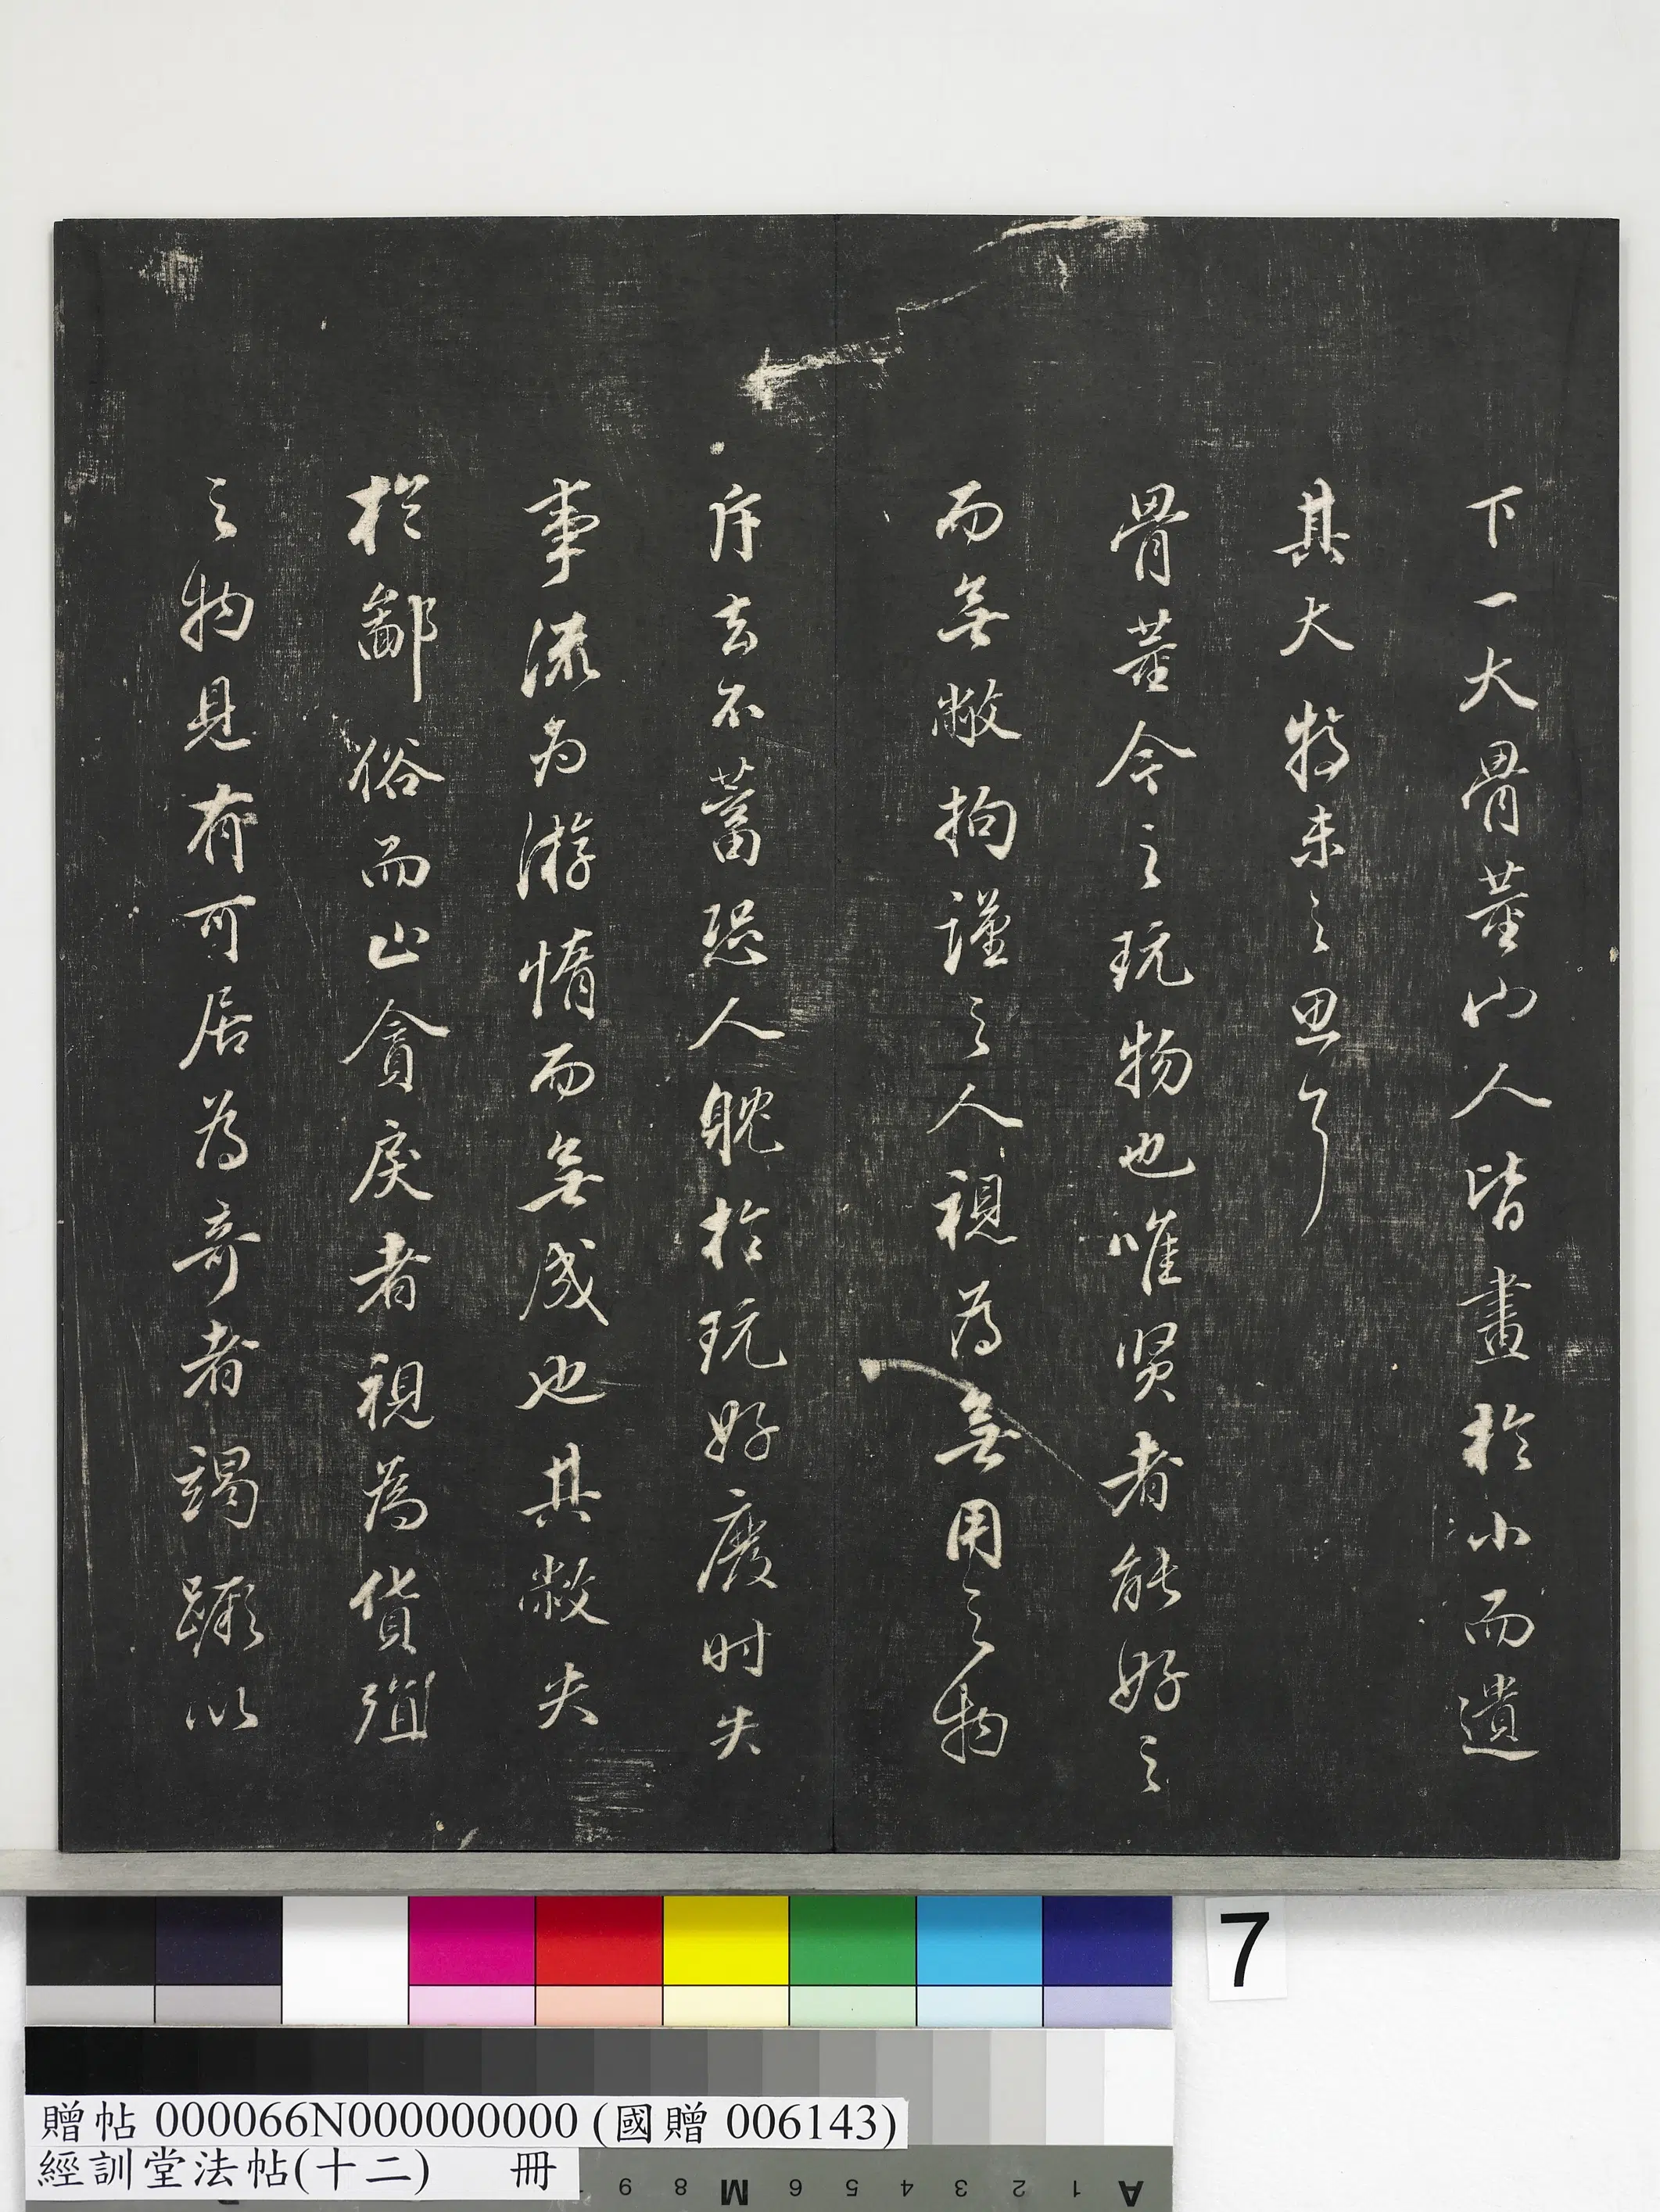 下一大骨董而人皆畫於小而遺
其大特未之思耳
骨董今之玩物也唯賢者能好之
而無敝拘謹之人視為無用之物
斥去不蓄恐人耽於玩好廢時失
事流為游惰而無成也其敝失
於鄙俗而止貪戾者視為貨殖
之物見有可居為奇者竭蹶以
7
贈帖 000066N000000000 (國贈 006143)
經訓堂法帖(十二) 冊
A 1 2 3 4 5 6 M 8 9